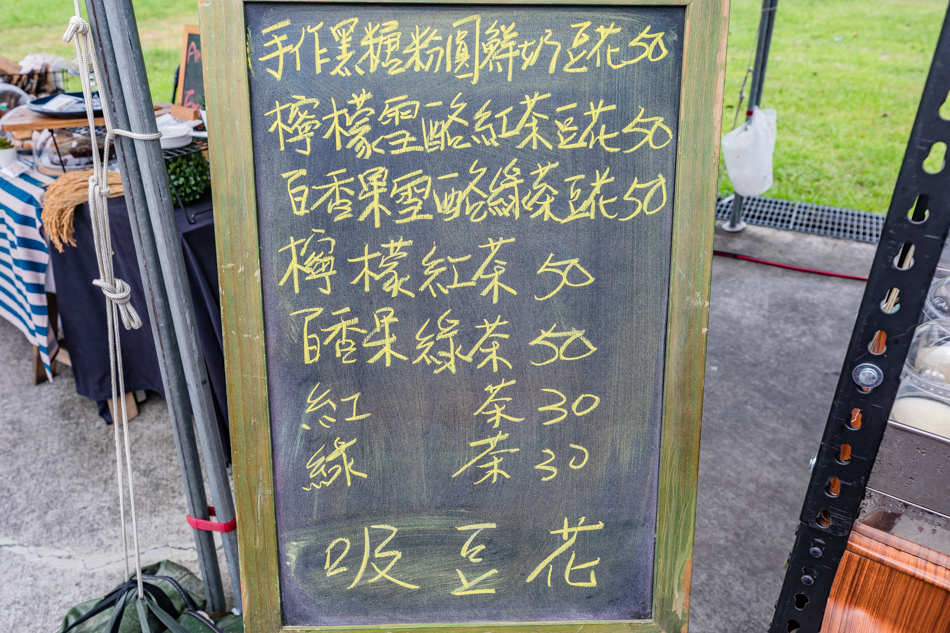 手作黑糖粉圓鮮奶豆花50
檸檬雪酪紅茶豆花50
百香果雪酪綠茶豆花50
檸檬紅茶 50
百香果綠茶 50
紅 茶 30
綠 茶 30
吸豆花